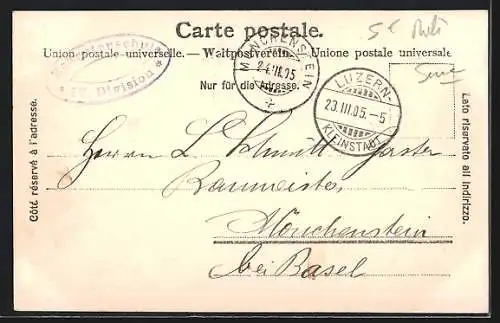 Carte postale.
Union postale universelle. — Weltpostverein. — Unione postale universale
Nur für die Adresse.
Côté réservé à l'adresse.
Lato riservato all'indirizzo.
IV. Division
MÜNCHENSTEIN
24.III.05
LUZERN-
23.III.05.-5
KLEINSTADT
5€
Herrn L. Schmitt
Baumeister,
Mönchenstein
bei Basel